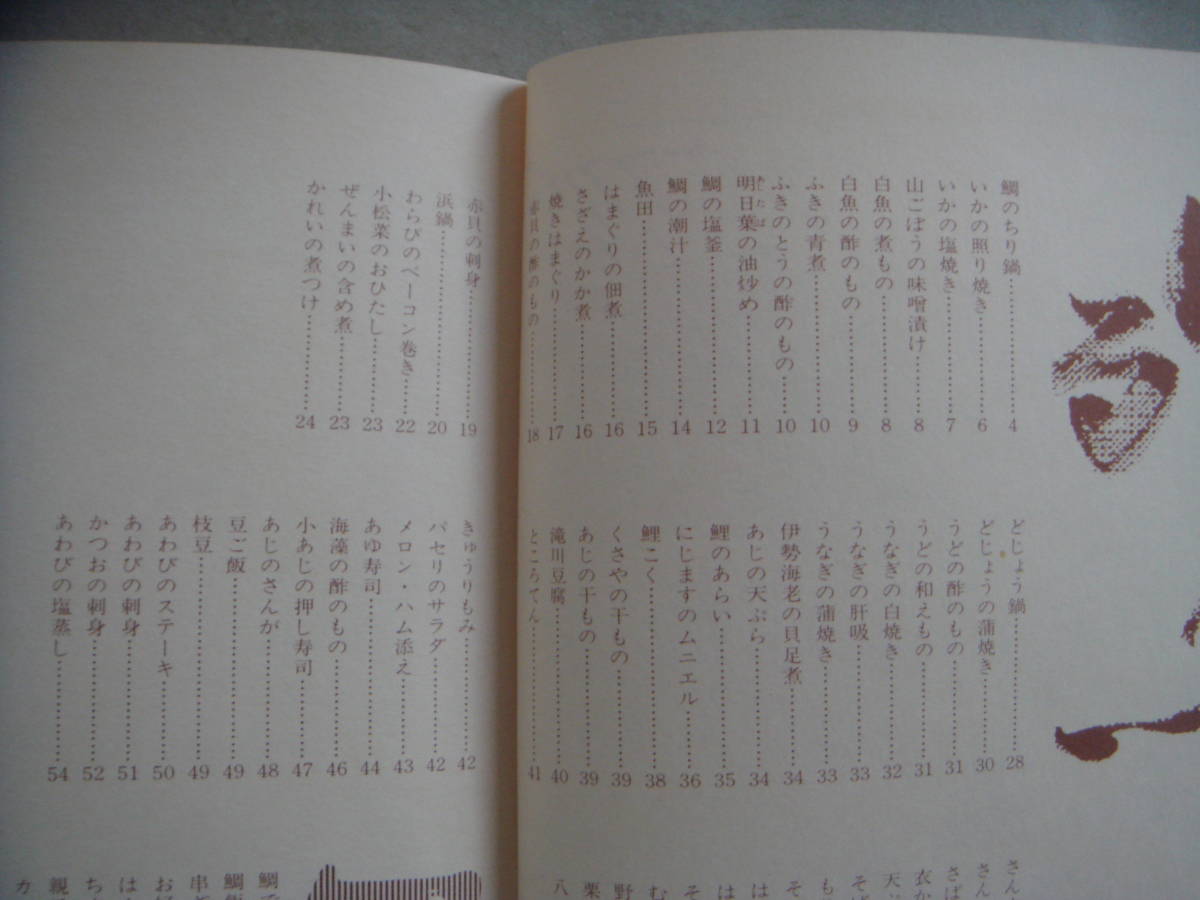 鯛のちり鍋……4
いかの照り焼き……6
いかの塩焼き……7
山ごぼうの味噌漬け……8
白魚の煮もの……8
白魚の酢のもの……9
ふきの青煮……10
ふきのとうの酢のもの……10
明日葉の油炒め……11
鯛の塩釜……12
鯛の潮汁……14
魚田……15
はまぐりの佃煮……16
さざえのかか煮……16
焼きはまぐり……17
赤貝の酢のもの……18
赤貝の刺身……19
浜鍋……20
わらびのベーコン巻き……22
小松菜のおひたし……23
ぜんまいの含め煮……23
かれいの煮つけ……24
どじょう鍋……28
どじょうの蒲焼き……30
うどの酢のもの……31
うどの和えもの……31
うなぎの白焼き……32
うなぎの肝吸……33
うなぎの蒲焼き……33
伊勢海老の具足煮……34
あじの天ぷら……34
鯉のあらい……35
にじますのムニエル……36
鯉こく……38
くさやの干もの……39
あじの干もの……39
滝川豆腐……40
ところてん……41
きゅうりもみ……42
パセリのサラダ……42
メロン・ハム添え……43
あゆ寿司……44
海藻の酢のもの……46
小あじの押し寿司……47
あじのさんが……48
豆ご飯……49
枝豆……49
あわびのステーキ……50
あわびの刺身……51
かつおの刺身……52
あわびの塩蒸し……54